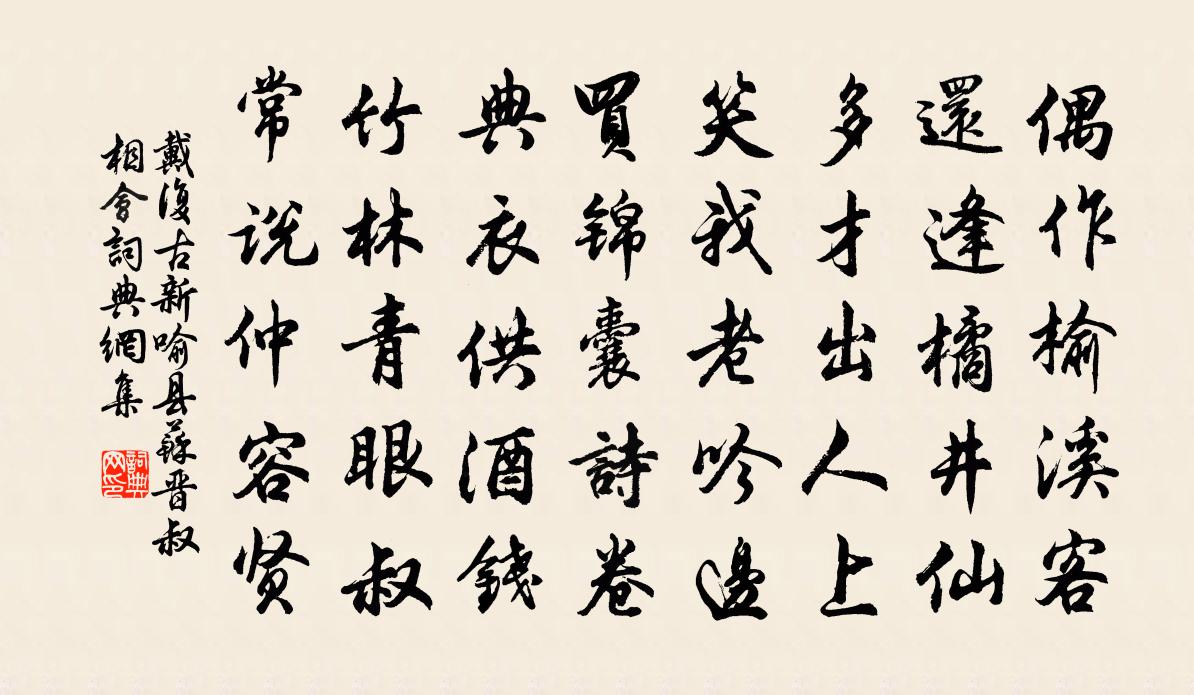 偶作榆溪客
還逢橘井仙
多才出人上
笑我老吟邊
買錦囊詩卷
典衣供酒錢
竹林青眼叔
常说仲容贤
戴復古新喻县蘇晋叔
相會詞典網集
詞典
网印